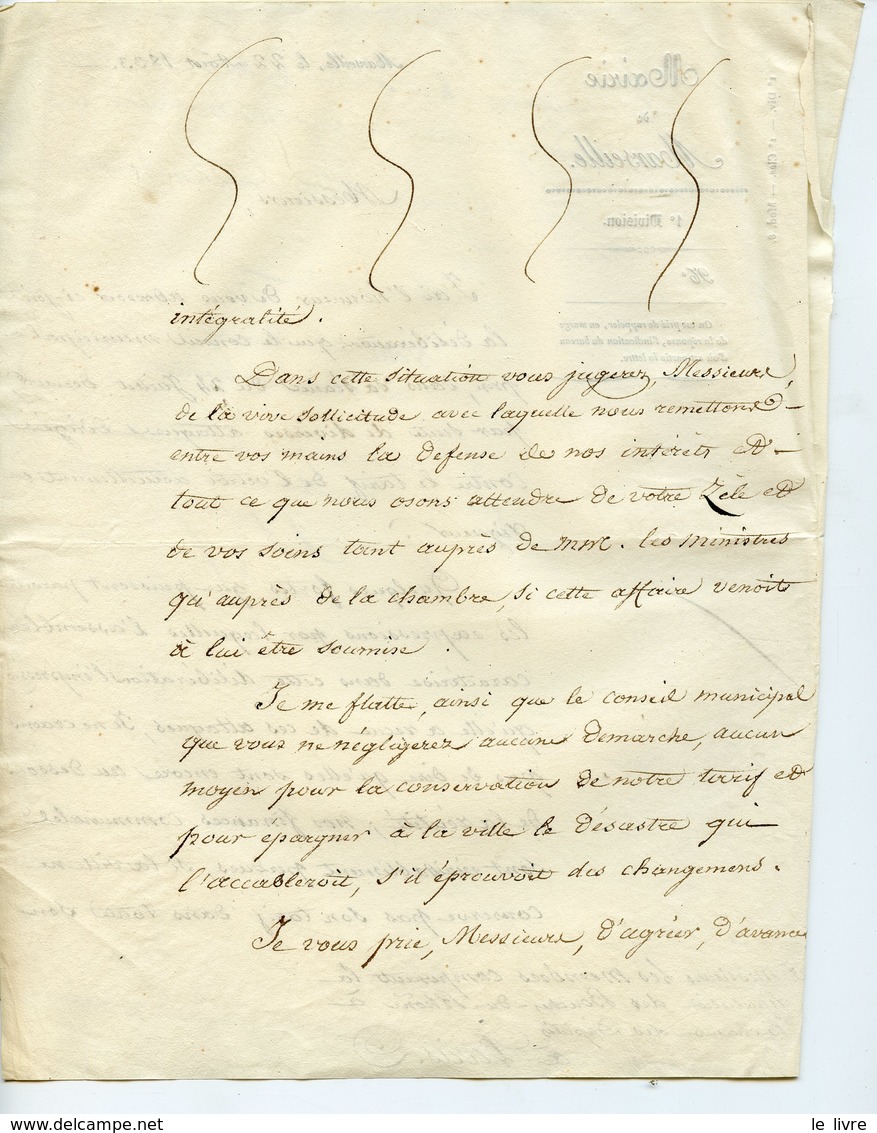 intégralité.
Dans cette situation vous jugerez, Messieurs,
de la vive sollicitude avec laquelle nous remettons
entre vos mains la défense de nos intérêts et
tout ce que nous osons attendre de votre zèle et
de vos soins tant auprès de mrs. les ministres
qu'auprès de la chambre, si cette affaire venoit
à lui être soumise.
Je me flatte, ainsi que le conseil municipal
que vous ne négligerez aucune démarche, aucun
moyen pour la conservation de notre tarif et
pour épargner à la ville le désastre qui
l'accableroit, s'il éprouvoit des changemens.
Je vous prie, Messieurs, d'agréer, d'avance
le livre